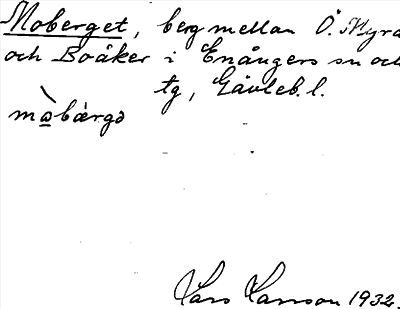 Moberget, berg mellan Ö. Myra
och Boåker i Enångers sn och
tg, Gävleb. l.
mo̲bärgə
Lars Larsson 1932.